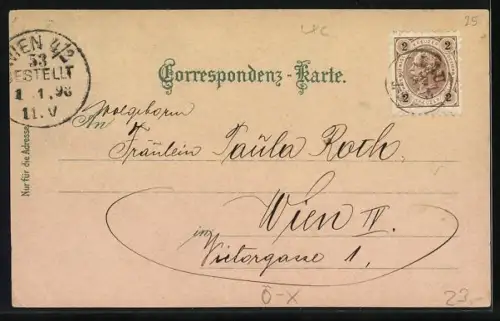 uc.
25
WIEN 4/2
53
BESTELLT
1 .1.98
11.V
2 2
2 2
Correspondenz-Karte.
Wolgeborn
An
Fräulein Paula Roth,
Wien IV.
Victorgasse 1,
Nur für die Adresse
O-X
23,-